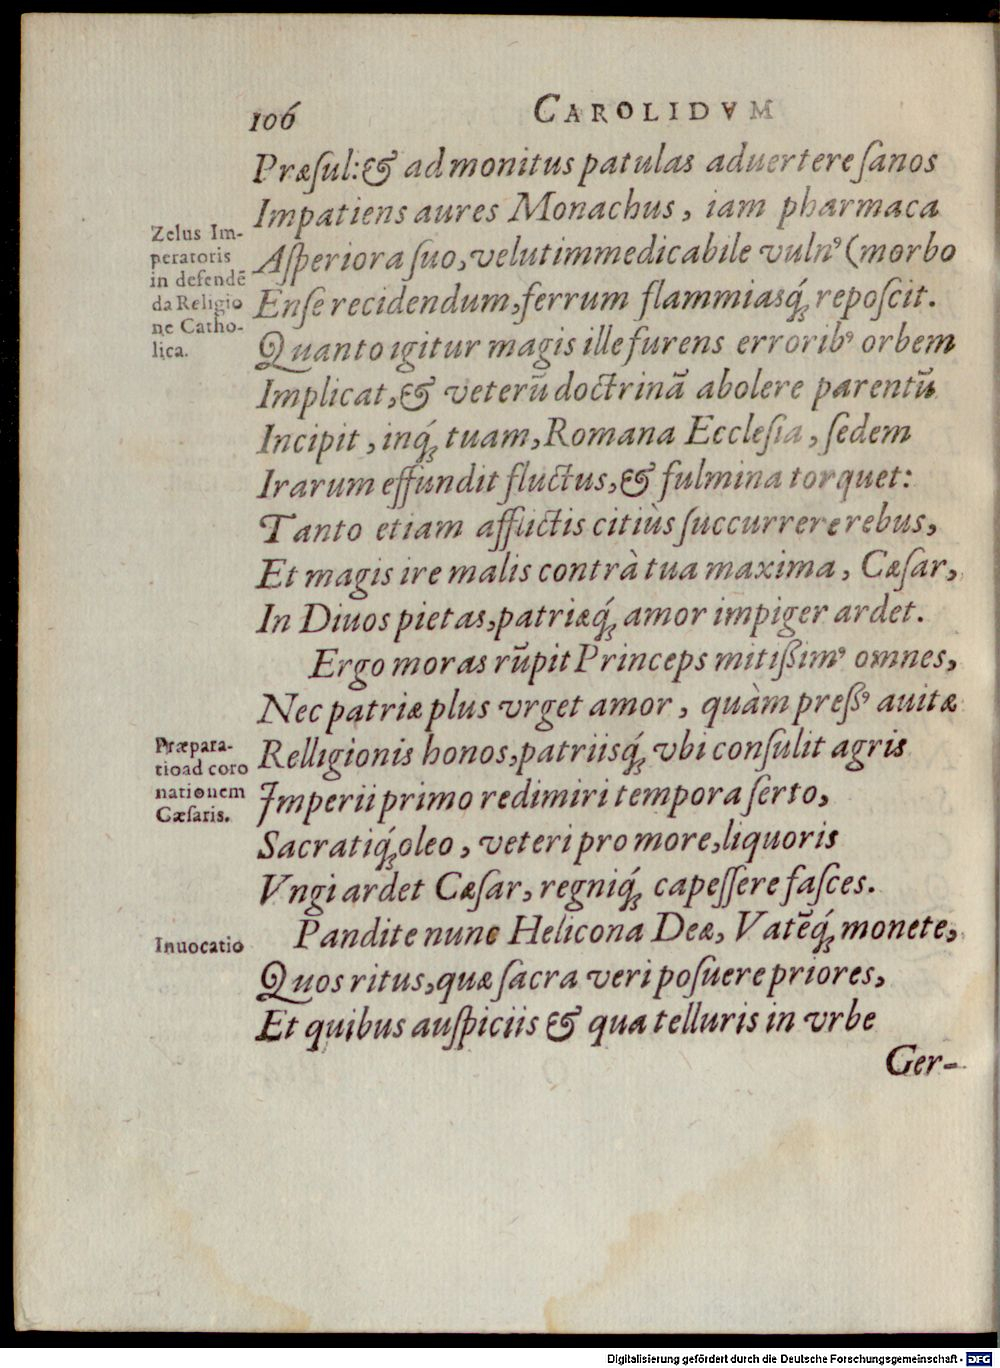 106 CAROLIDVM
Præſul:& ad monitus patulas aduertere ſanos
Impatiens aures Monachus, iam pharmaca
Aſperiora ſuo, velut immedicabile vulnꝰ (morbo
Enſe recidendum, ferrum flammiasq́ꝫ repoſcit.
Quanto igitur magis ille furens erroribꝰ orbem
Implicat, & veterũ doctrinã abolere parentũ
Incipit, inq́ꝫ tuam, Romana Eccleſia, ſedem
Irarum effundit fluctus, & fulmina torquet:
Tanto etiam afflictis citiùs ſuccurrere rebus,
Et magis ire malis contrà tua maxima, Cæſar,
In Diuos pietas, patriæq́ꝫ amor impiger ardet.
Ergo moras rũpit Princeps mitißimꝰ omnes,
Nec patriæ plus vrget amor, quàm preßꝰ auitæ
Relligionis honos, patriisq́ꝫ vbi conſulit agris
Imperii primo redimiri tempora ſerto,
Sacratiq́ꝫ oleo, veteri pro more, liquoris
Vngi ardet Cæſar, regniq́ꝫ capeſſere faſces.
Pandite nunc Helicona Deæ, Vatẽq́ꝫ monete,
Quos ritus, quæ ſacra veri poſuere priores,
Et quibus auſpiciis & qua telluris in vrbe
Ger-
Zelus Im-
peratoris
in defendẽ
da Religio
ne Catho-
lica.
Præpara-
tio ad coro
nationem
Cæſaris.
Inuocatio
Digitalisierung gefördert durch die Deutsche Forschungsgemeinschaft - DFG